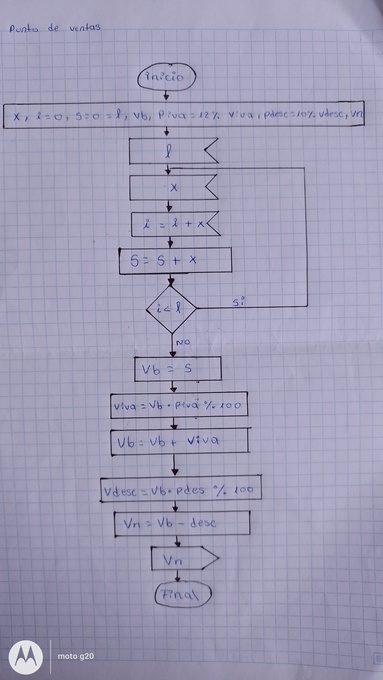 Punto de ventas
inicio
x, i=0, S=0=l, Vb, Piva=12% Viva, Pdesc=10% Vdesc, Vn
l
x
i = i + x
S = S + x
i < l
Si
NO
Vb = S
Viva = Vb * Piva % 100
Vb = Vb + Viva
Vdesc = Vb * Pdes % 100
Vn = Vb - desc
Vn
Final
moto g20